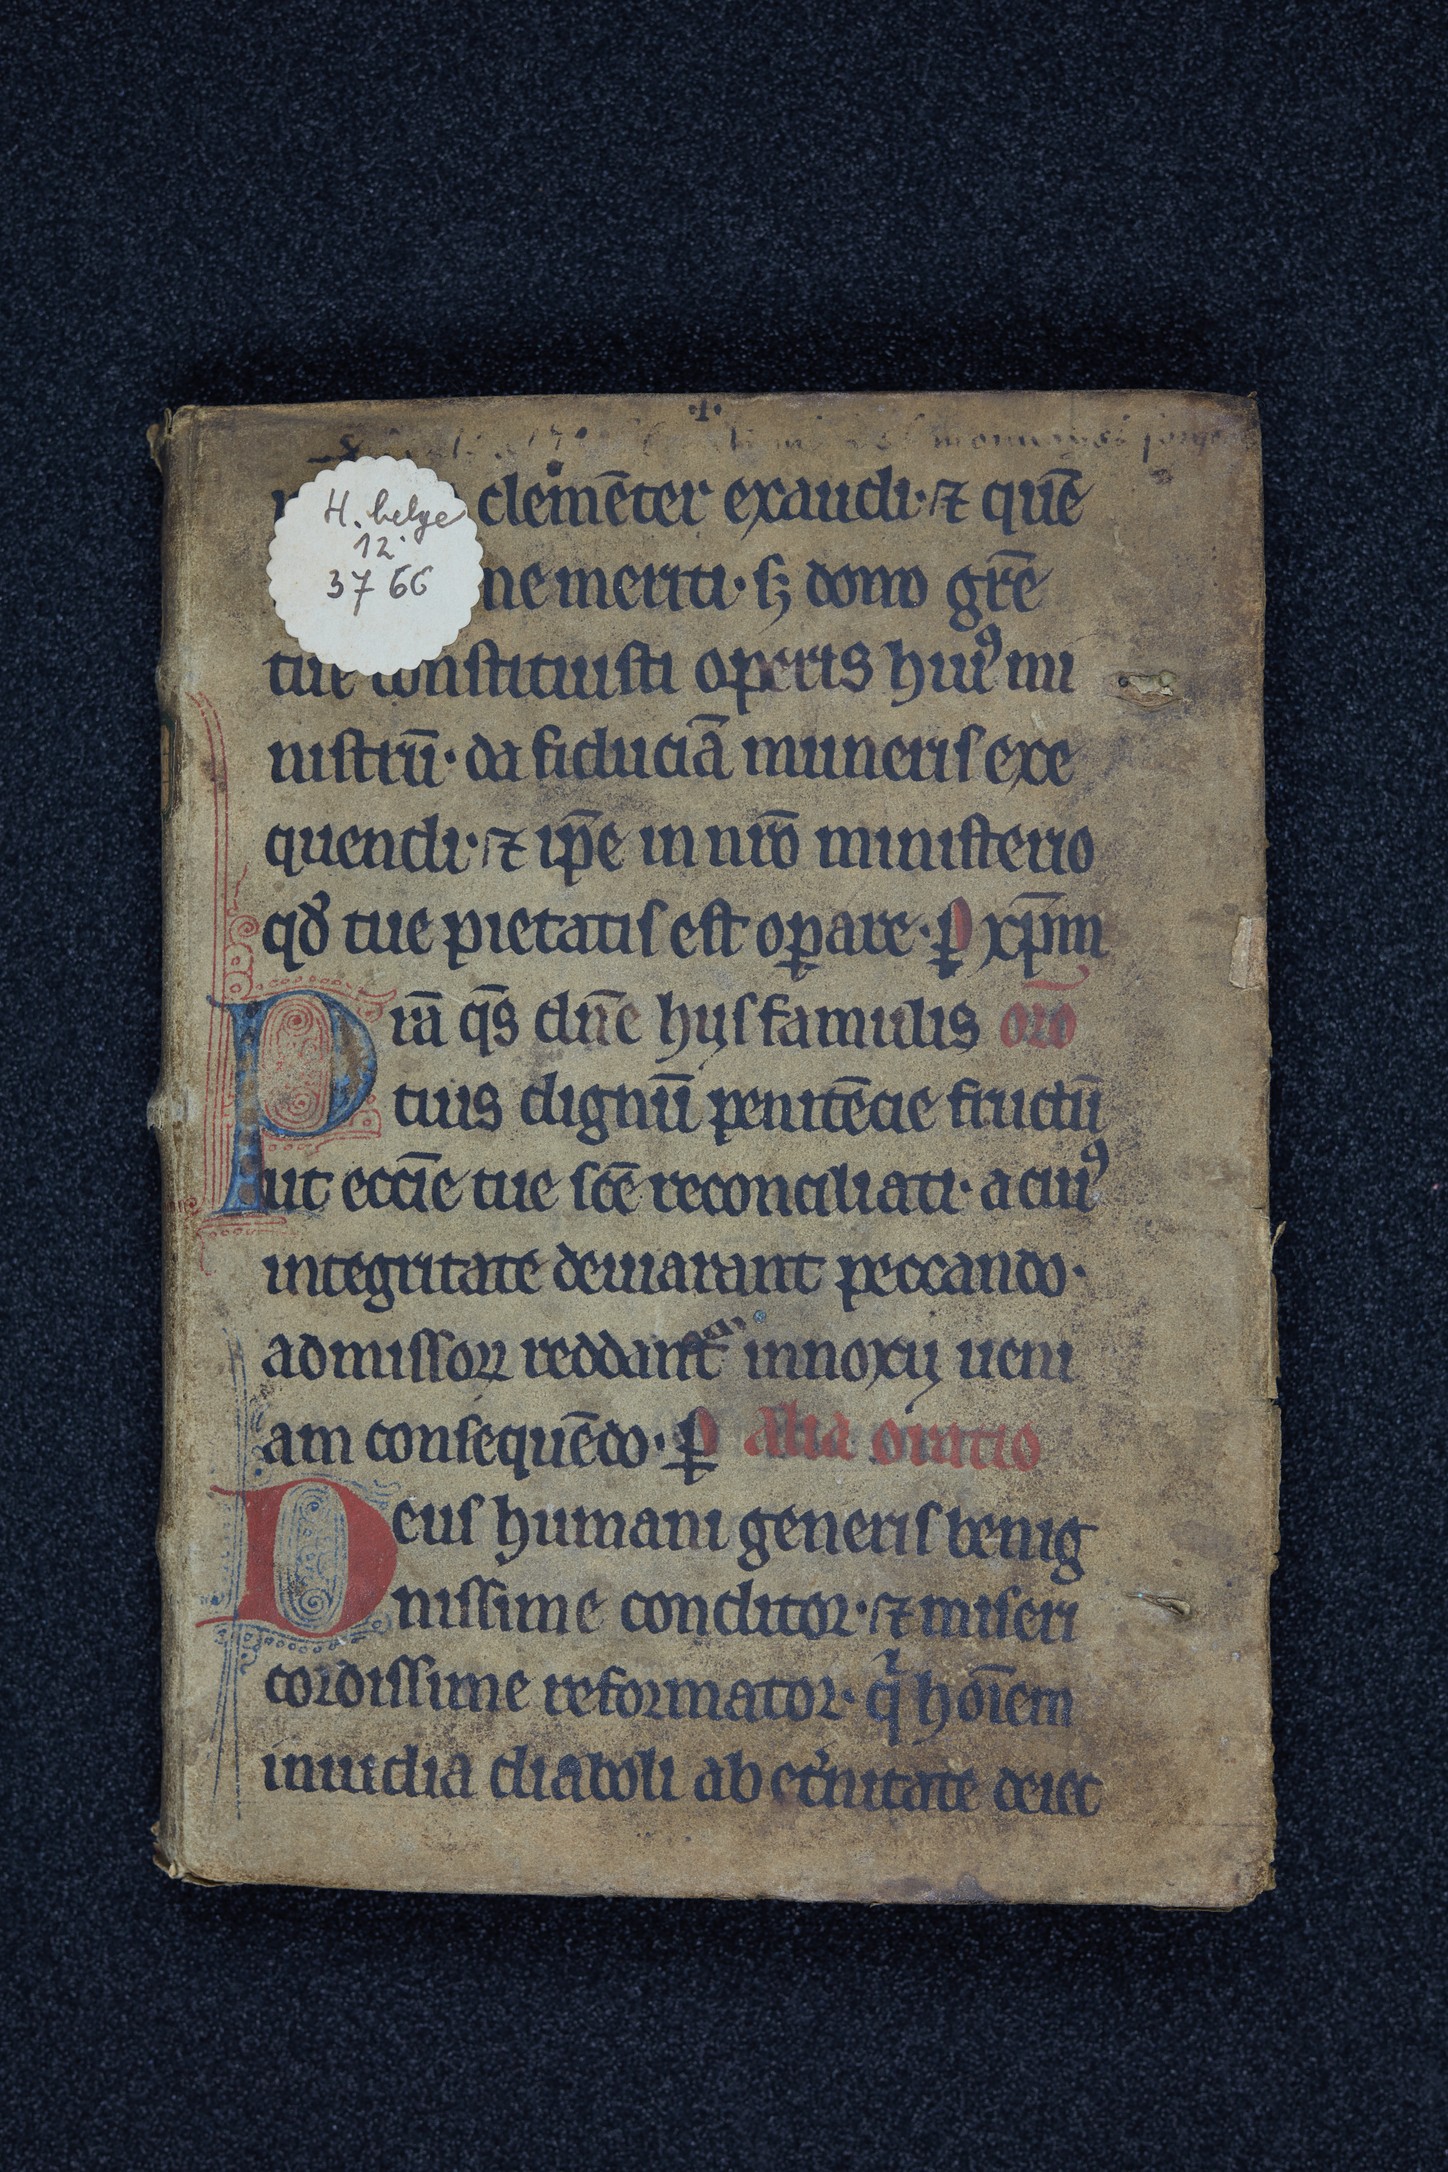 ·I·
H. belge
12°
3766
clemēter exaudi· ⁊ quē
ne meriti· sꝫ dono gr̄e
tue constituisti operis huiꝰ mi
nistrū· da fiduciā muneris exe
quendi· ⁊ ip̄e in nr̄o ministerio
qđ tue pietatis est oꝑare· ꝑ xp̄m
Prā q̄s dn̄e hijs famulis or̄o
tuis dignū penitēcie fructū
ut eccīe tue sc̄e reconciliati· a cuiꝰ
integritate deuiarant peccando·
admissoꝝ reddant innoxij ueni
am consequēdo· ꝑ alia oratio
Deus humani generis benig
nissime conditor· ⁊ miseri
cordissime reformator· qⁱ hoīem
inuidia diaboli ab et'nitate deiec